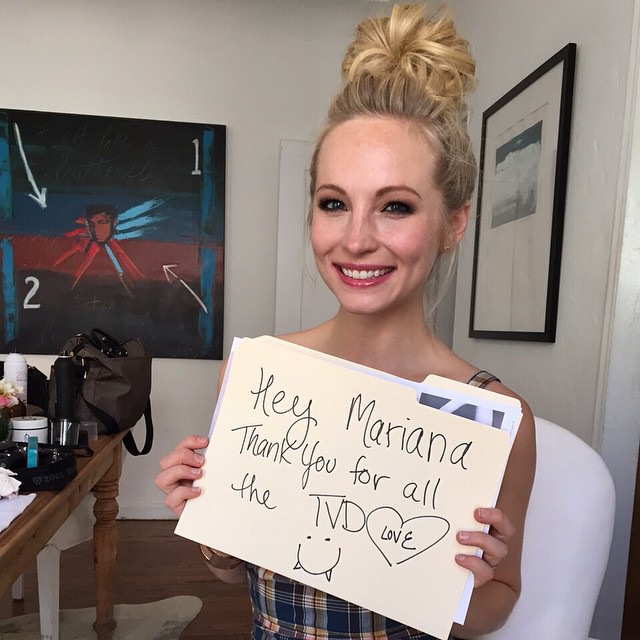 Hey Mariana
Thank You for all
the TVD LOVE
1
2